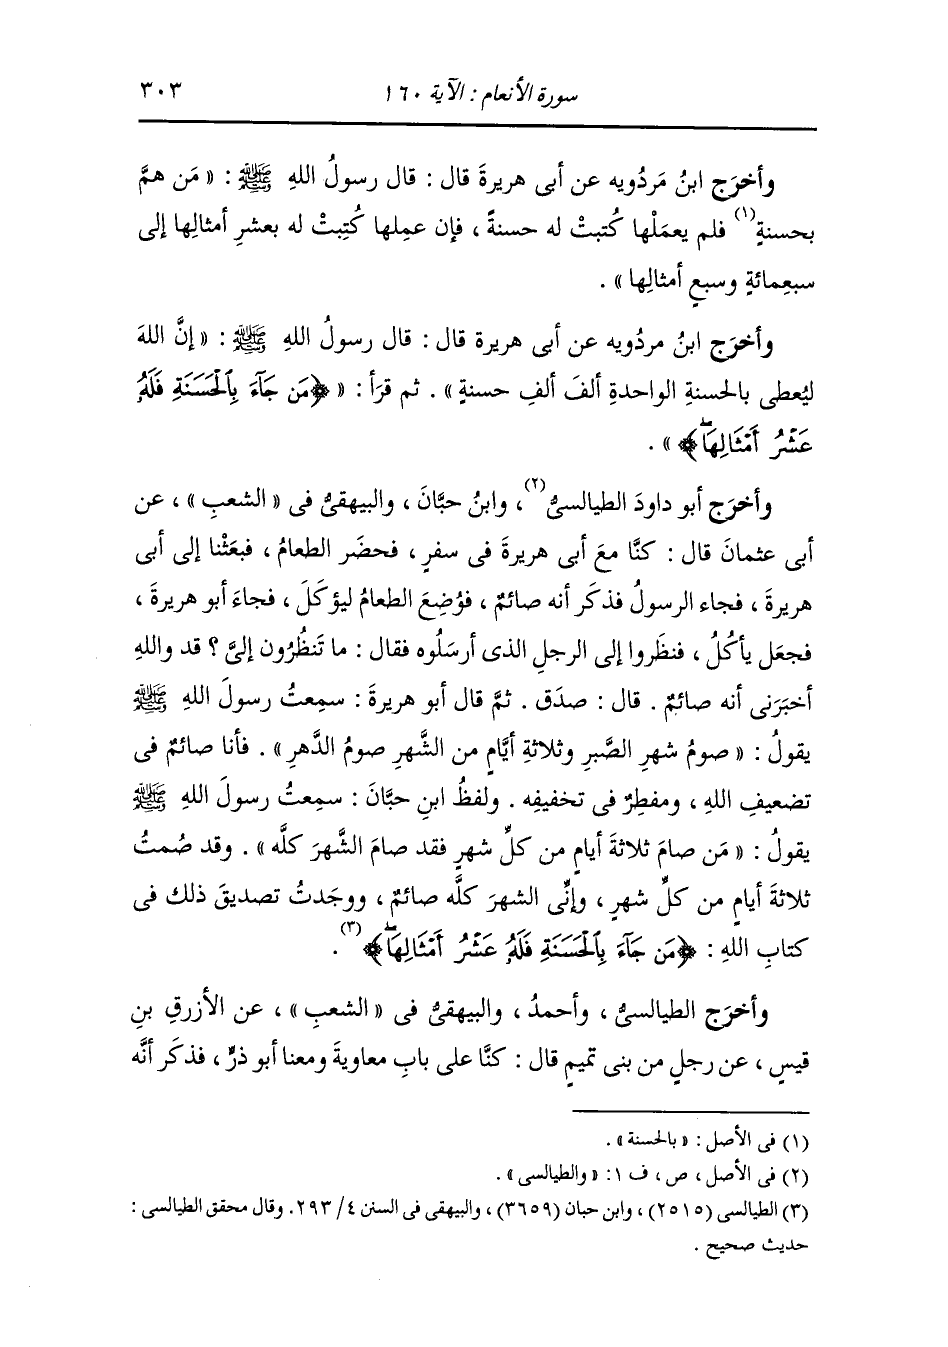 سورة الأنعام : الآية ١٦٠ ٣٠٣
وأخرَج ابنُ مَردُويه عن أبى هريرةَ قال : قال رسولُ اللهِ ﷺ : « مَن همَّ
بحسنةٍ(١) فلم يعمَلْها كُتبتْ له حسنةً ، فإن عمِلها كُتِبتْ له بعشرِ أمثالِها إلى
سبعِمائةٍ وسبعِ أمثالِها » .
وأخرَج ابنُ مردُويه عن أبى هريرة قال : قال رسولُ اللهِ ﷺ : « إنَّ اللهَ
ليُعطى بالحسنةِ الواحدةِ ألفَ ألفِ حسنةٍ » . ثم قرَأ : « ﴿مَن جَآءَ بِٱلْحَسَنَةِ فَلَهُۥ
عَشْرُ أَمْثَالِهَاۖ﴾ » .
وأخرَج أبو داودَ الطيالسىُّ(٢) ، وابنُ حبَّانَ ، والبيهقىُّ فى « الشعبِ » ، عن
أبى عثمانَ قال : كنَّا معَ أبى هريرةَ فى سفرٍ ، فحضَر الطعامُ ، فبعَثْنا إلى أبى
هريرةَ ، فجاء الرسولُ فذكَر أنه صائمٌ ، فوُضِعَ الطعامُ ليؤكَلَ ، فجاءَ أبو هريرةَ ،
فجعَل يأكُلُ ، فنظَروا إلى الرجلِ الذى أرسَلُوه فقال : ما تَنظُرُون إلىَّ ؟ قد واللهِ
أخبَرَنى أنه صائمٌ . قال : صدَق . ثمَّ قال أبو هريرةَ : سمِعتُ رسولَ اللهِ ﷺ
يقولُ : « صومُ شهرِ الصَّبرِ وثلاثةِ أيَّامٍ من الشَّهرِ صومُ الدَّهرِ » . فأنا صائمٌ فى
تضعيفِ اللهِ ، ومفطِرٌ فى تخفيفِه . ولفظُ ابنِ حبَّانَ : سمِعتُ رسولَ اللهِ ﷺ
يقولُ : « مَن صامَ ثلاثةَ أيامٍ من كلِّ شهرٍ فقد صامَ الشَّهرَ كلَّه » . وقد صُمتُ
ثلاثةَ أيامٍ من كلِّ شهرٍ ، وإنِّى الشهرَ كلَّه صائمٌ ، ووجَدتُ تصديقَ ذلك فى
كتابِ اللهِ : ﴿مَن جَآءَ بِٱلْحَسَنَةِ فَلَهُۥ عَشْرُ أَمْثَالِهَاۖ﴾(٣) .
وأخرَج الطيالسىُّ ، وأحمدُ ، والبيهقىُّ فى « الشعبِ » ، عن الأزرقِ بنِ
قيسٍ ، عن رجلٍ من بنى تميمٍ قال : كنَّا على بابِ معاويةَ ومعنا أبو ذرٍّ ، فذكَر أنَّه
(١) فى الأصل : « بالحسنة » .
(٢) فى الأصل ، ص ، ف ١ : « والطيالسى » .
(٣) الطيالسى (٢٥١٥) ، وابن حبان (٣٦٥٩) ، والبيهقى فى السنن ٤/ ٢٩٣. وقال محقق الطيالسى :
حديث صحيح .